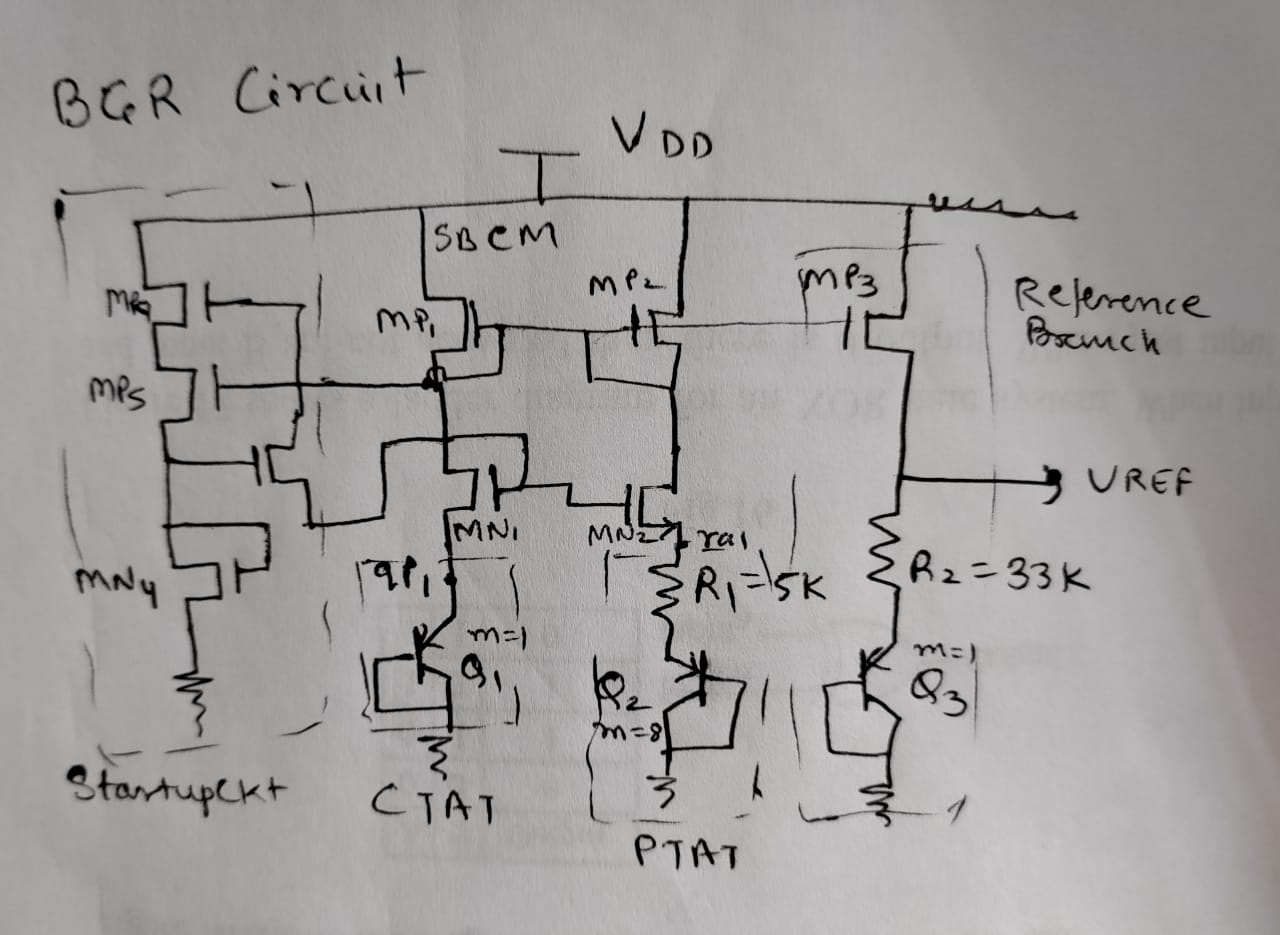 BGR Circuit
VDD
SBCM
MP4
MP1
MP2
MP3
Reference
Branch
MP5
VREF
MN1
MN2
ra1
MN4
qP1
R1=5K
R2=33K
m=1
Q1
Q2
m=8
m=1
Q3
Startupckt
CTAT
PTAT